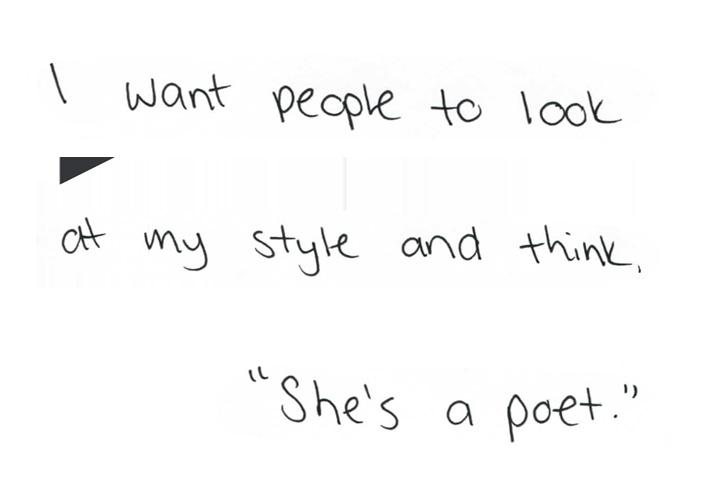 I want people to look
at my style and think,
"She's a poet."